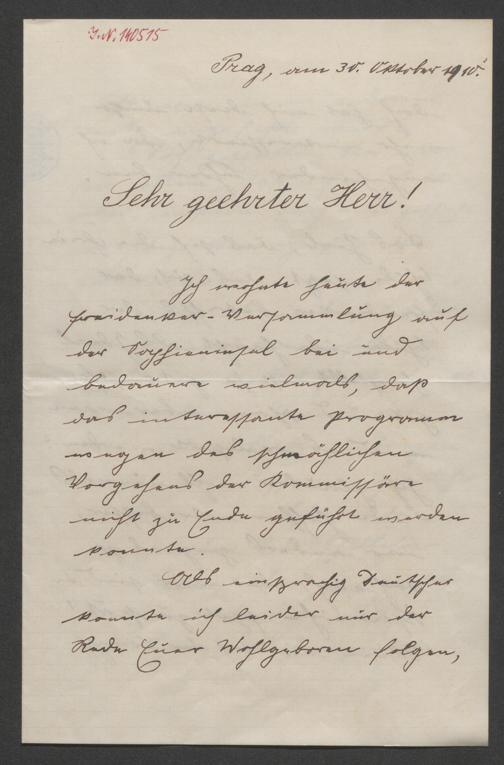 I.N. 140515
Prag, am 30. Oktober 1910.
Sehr geehrter Herr!
Ich wohnte heute der
Freidenker-Versammlung auf
der Sophieninsel bei und
bedauere vielmals, daß
das interessante Programm
wegen des schmählichen
Vorgehens der Kommissäre
nicht zu Ende geführt werden
konnte.
Als einsprachig Deutscher
konnte ich leider nur der
Rede Euer Wohlgeboren folgen,